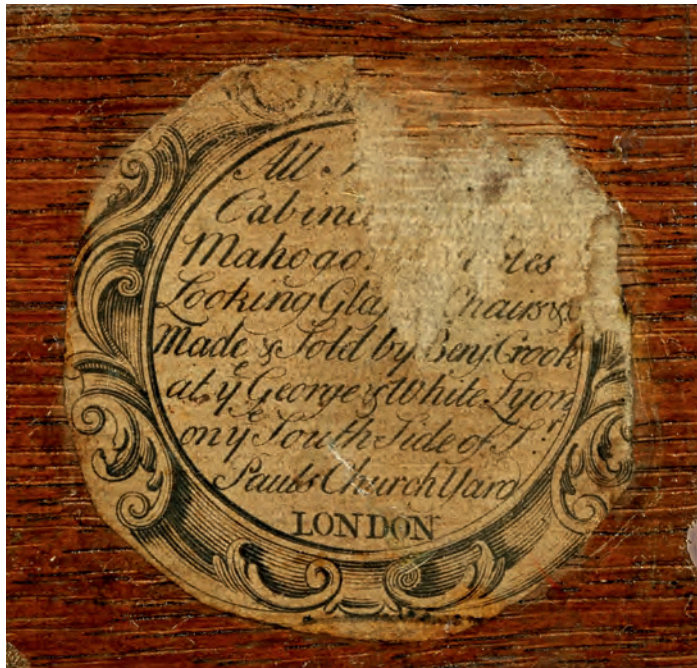 All
Mahogo
Looking Chairs &c
Made & Sold by Benj. Crook
at yͤ George & White Lyon
on yͤ South Side of Sͭ
Pauls Church Yard
LONDON